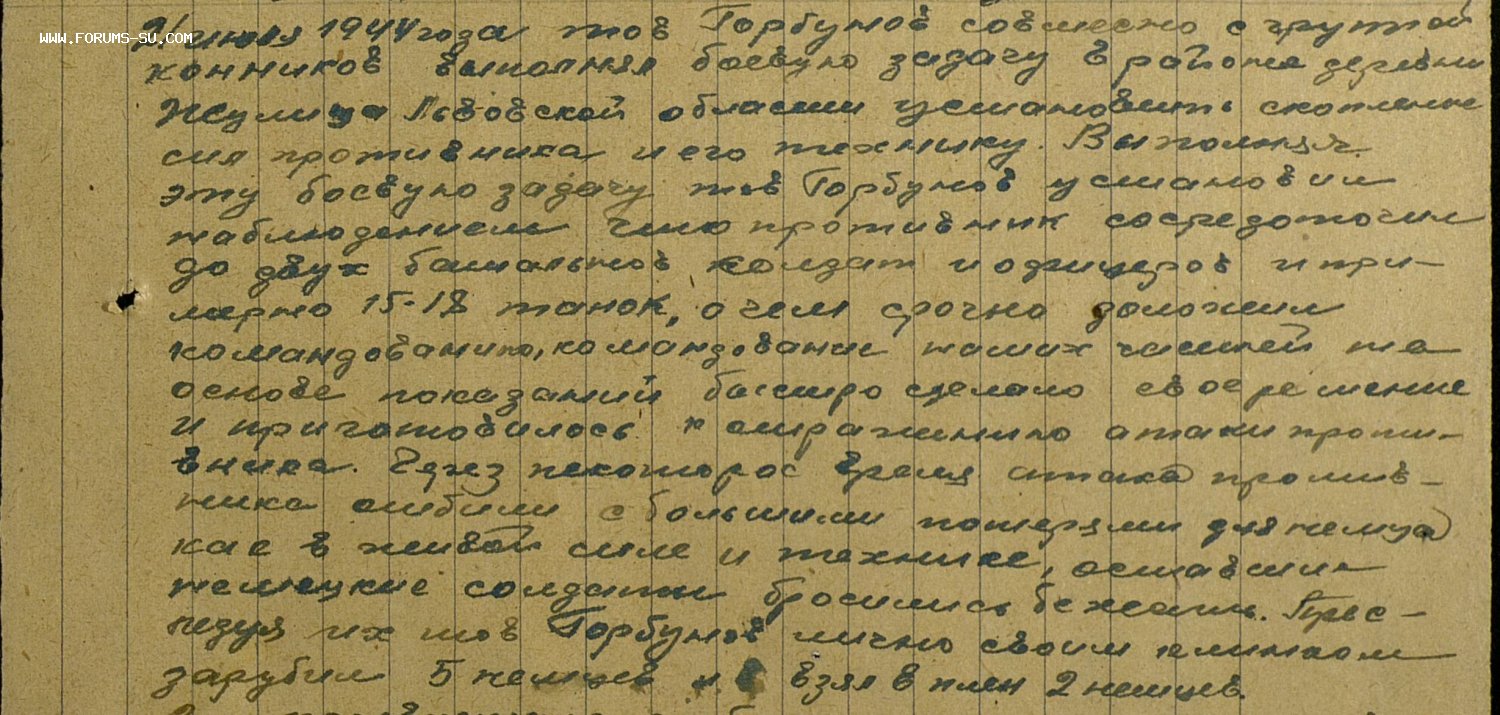 июля 1944 года тов Горбунов совместно с группой
WWW.FORUMS-SU.COM
конников выполнял боевую задачу в районе деревни
Жулице Львовской области установить скопление
сил противника и его технику. Выполняя
эту боевую задачу тов Горбунов установил
наблюдением что противник сосредоточил
до двух батальонов солдат и офицеров и при-
мерно 15-18 танок, о чем срочно доложил
командованию, командование наших частей на
основе показаний быстро сделало свое решение
и приготовилось к отражению атаки проти-
вника. Через некоторое время атака против-
ника отбили с большими потерями для немца
как в живой силе и технике, оставшие
немецкие солдаты бросились бежать. Прес-
ледуя их тов Горбунов лично своим клинком
зарубил 5 немцев и взял в плен 2 немцев.